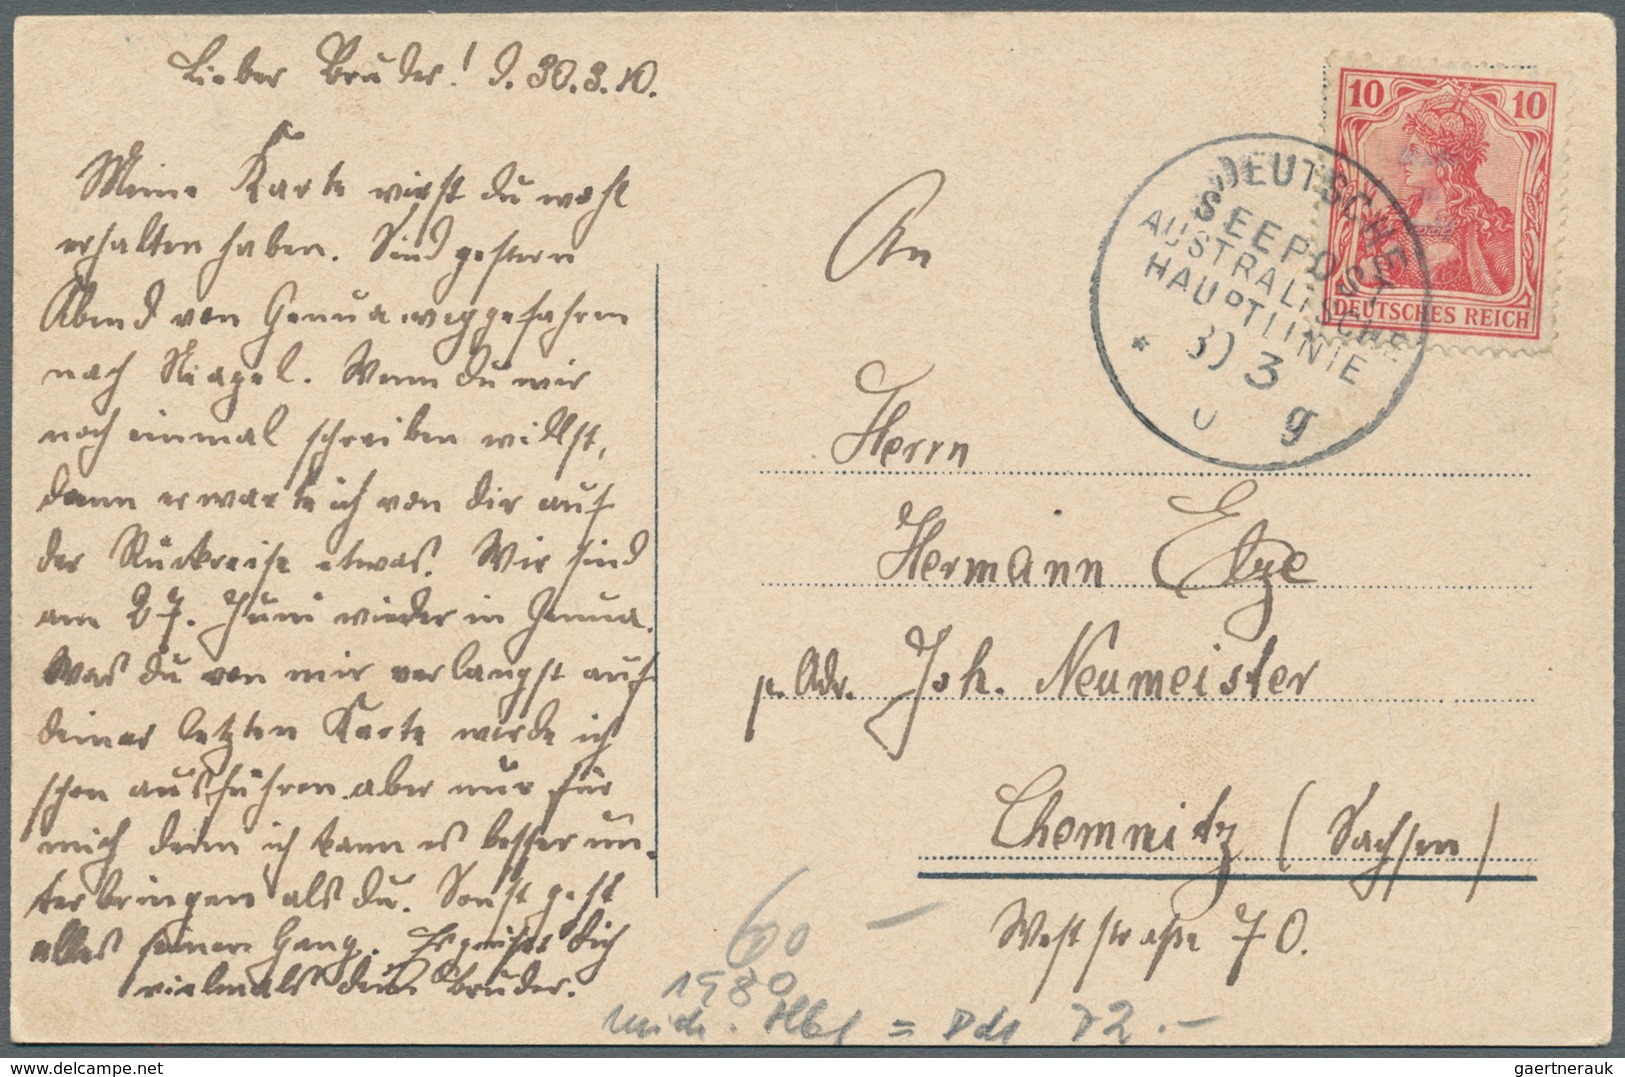 Lieber Bruder! d. 30.3.10.
Meine Karte wirst du wohl
erhalten haben. Sind gestern
Abend von Genua weggefahren
nach Neapel. Wenn du mir
noch einmal schreiben willst,
dann erwarte ich von dir auf
der Rückreise etwas. Wir sind
am 27. Juni wieder in Genua.
Was du von mir verlangst auf
deiner letzten Karte werde ich
schon ausführen aber nur für
mich denn ich kann es besser un-
terbringen als du. Sonst geht
alles seinen Gang. Es grüsst dich
vielmals dein Bruder.
10 10
DEUTSCHES REICH
DEUTSCHE
SEEPOST
AUSTRALISCHE
HAUPTLINIE
* 3
g
An
Herrn
Hermann Etze
p. Adr. Joh. Neumeister
Chemnitz (Sachsen)
Weststraße 70.
60 –
1980
Mich. Hbf = 72.-
www.delcampe.net
gaertnerauk